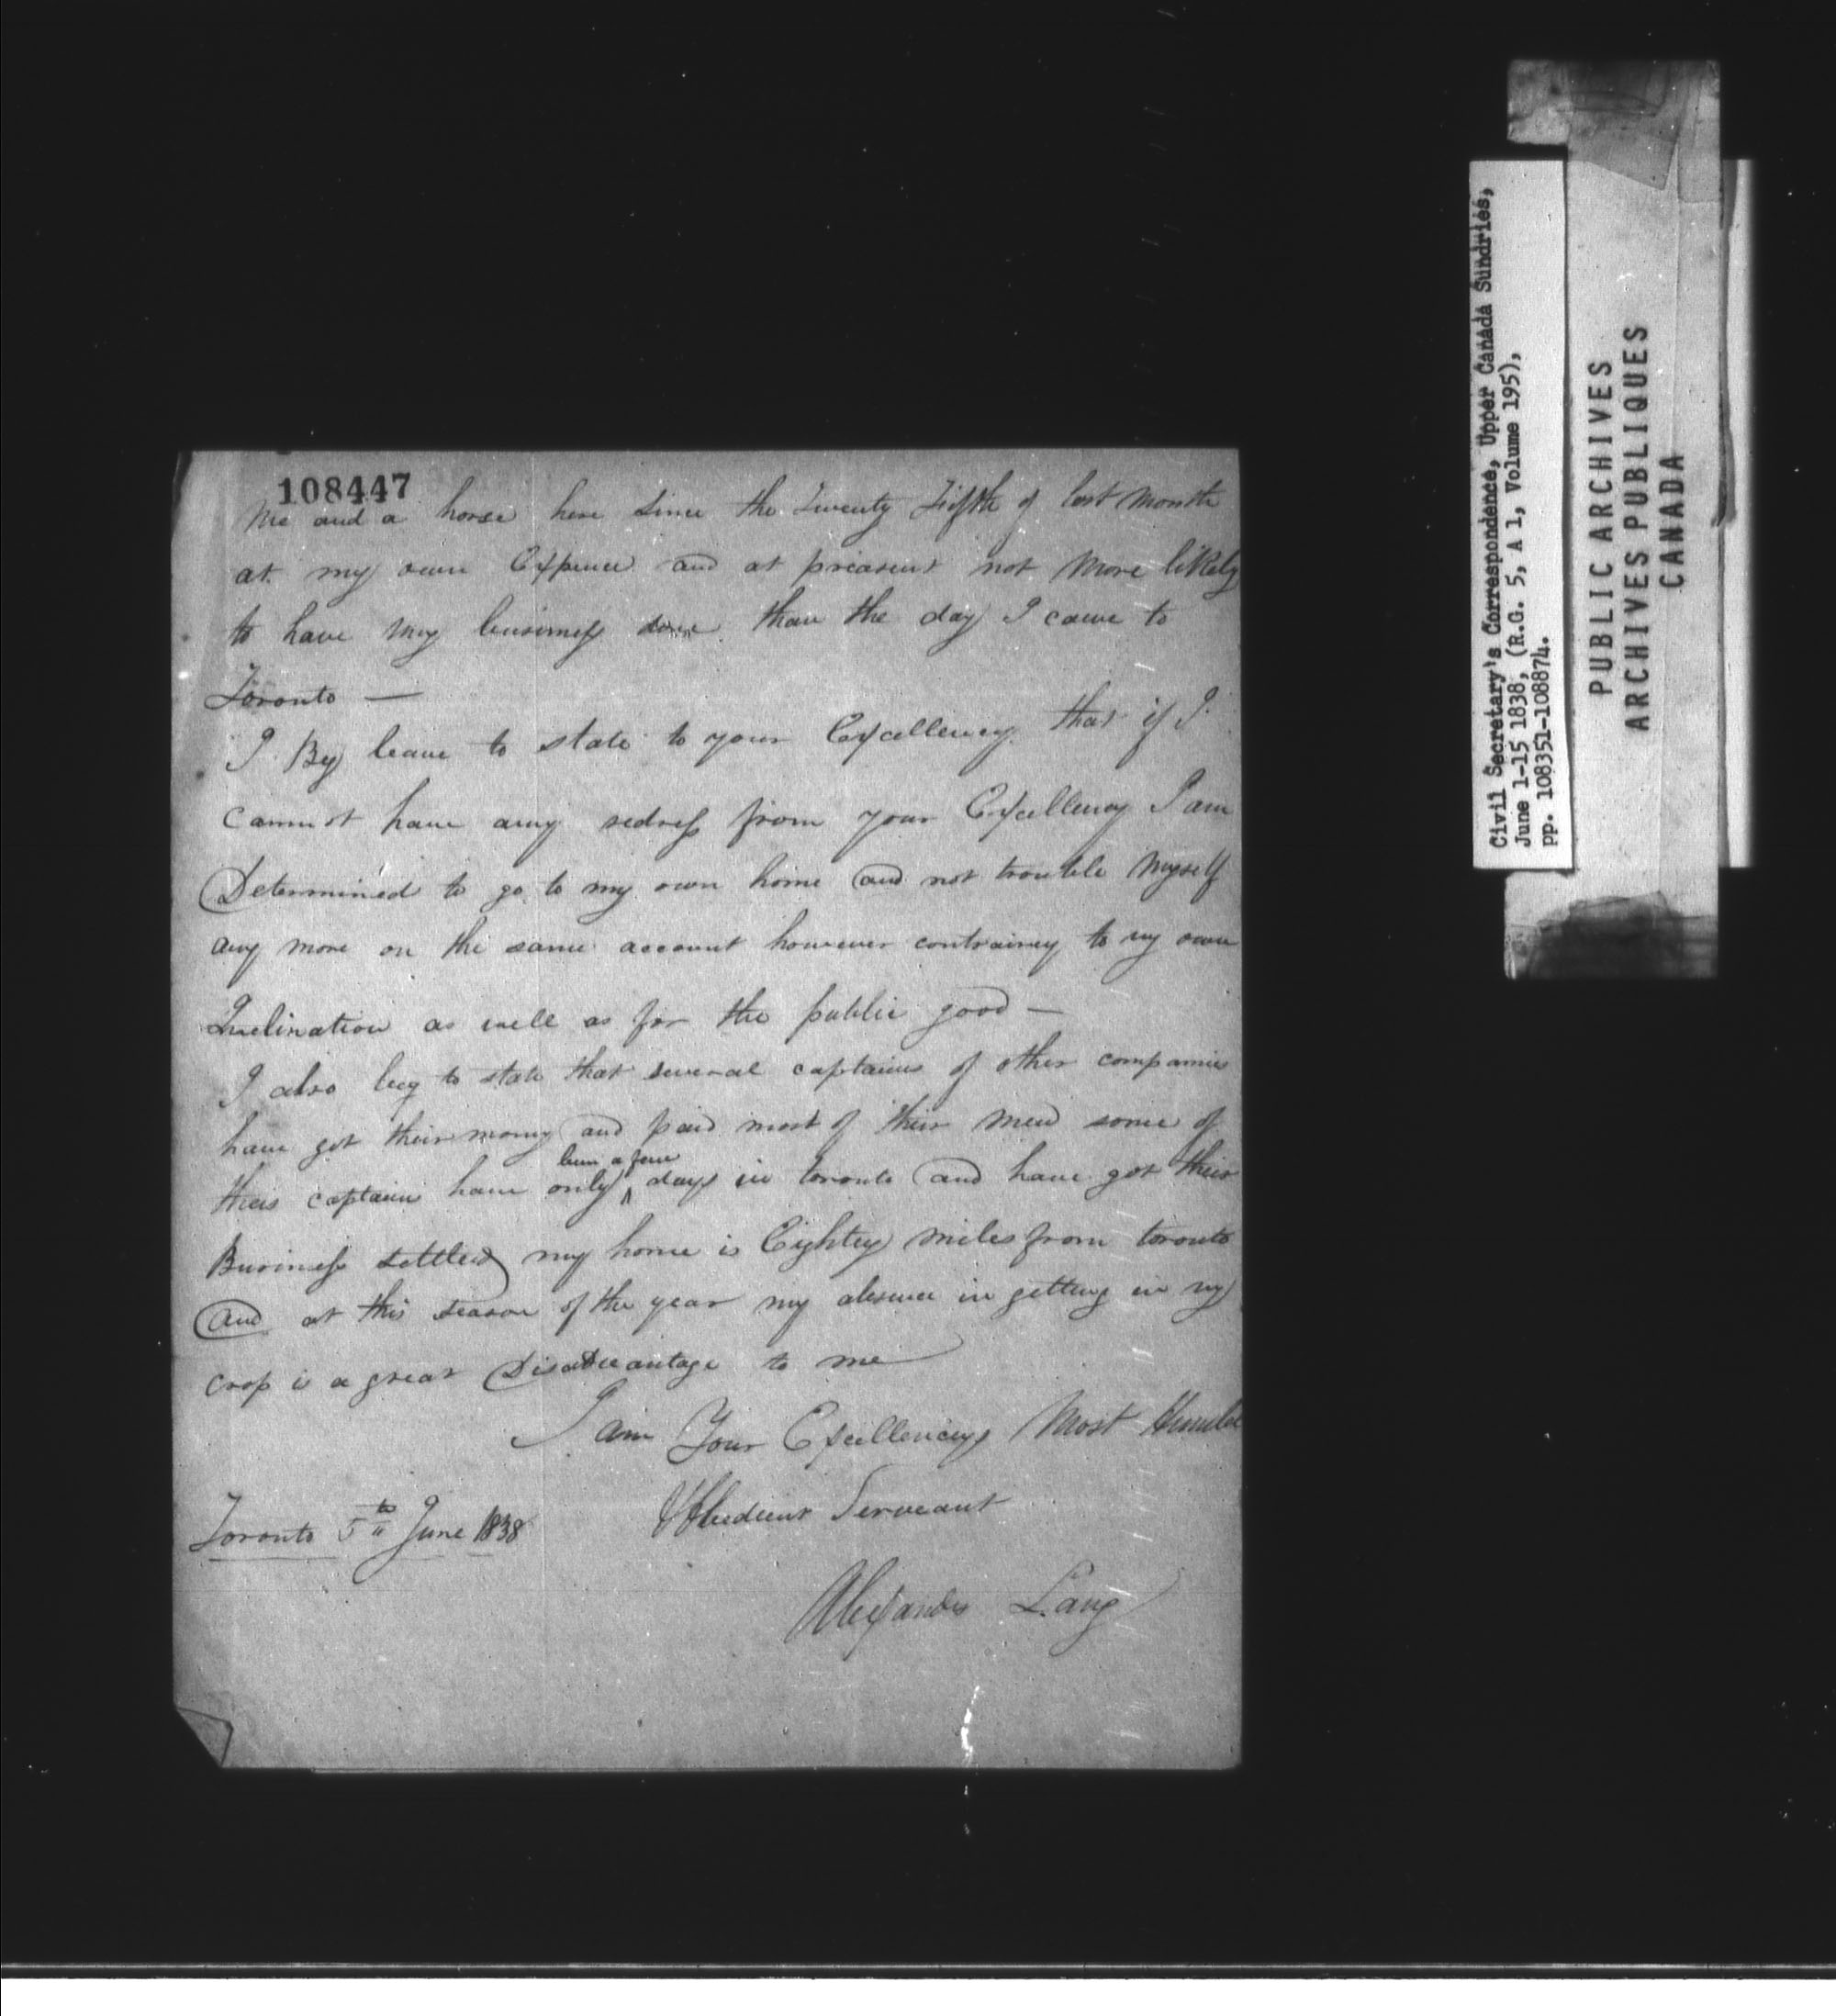 108447
Me and a horse here since the twenty fifth of last month
at my own Expence and at preasent not More likely
to have my business done than the day I came to
Toronto —
I Beg leave to state to your Excellency that if I
cannot have any redress from your Excellency I am
Determined to go to my own home and not trouble Myself
any more on the same account however contrairey to my own
Inclination as well as for the public good —
I also beg to state that several captains of other companies
have got their money and paid most of their men some of
theis captain have only been a few days in toronto and have got their
Business settled my home is Eightey miles from toronto
and at this season of the year my absence in getting in my
crop is a great Disadveantage to me
I am Your Excellencys Most Humble
Obedient Serveant
Toronto 5th June 1838
Alexander Lang
Civil Secretary's Correspondence, Upper Canada Sundries,
June 1-15 1838, (R.G. 5, A 1, Volume 195),
pp. 108351-108874.
PUBLIC ARCHIVES
ARCHIVES PUBLIQUES
CANADA